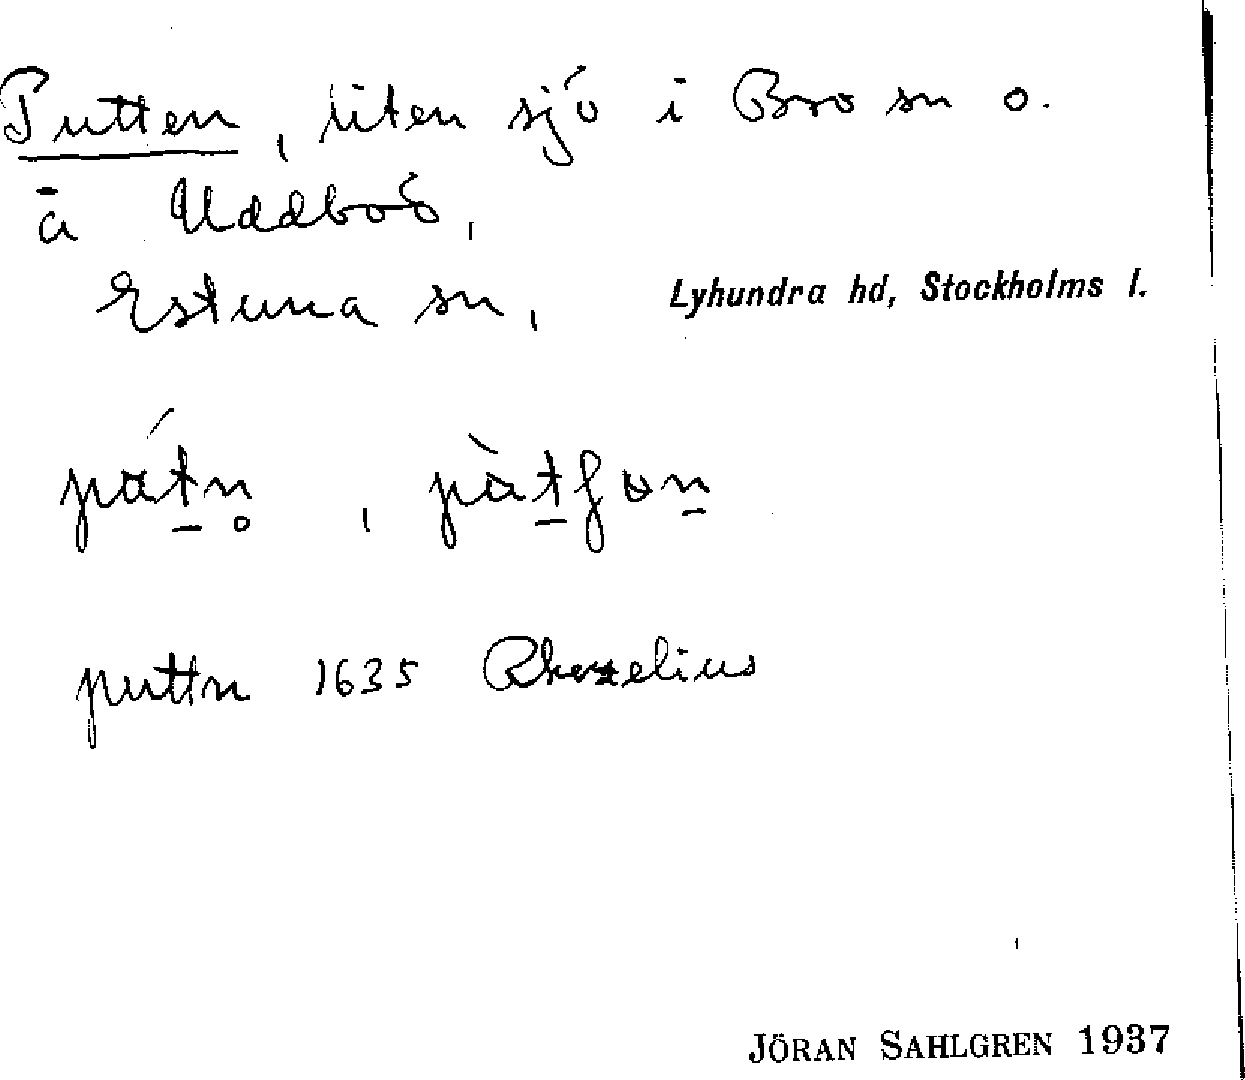 Putten, liten sjö i Bro sn o.
å Uddboö,
Estuna sn, Lyhundra hd, Stockholms l.
pátn̥, pàtʃɷn
puttn 1635 Rhezelius
JÖRAN SAHLGREN 1937